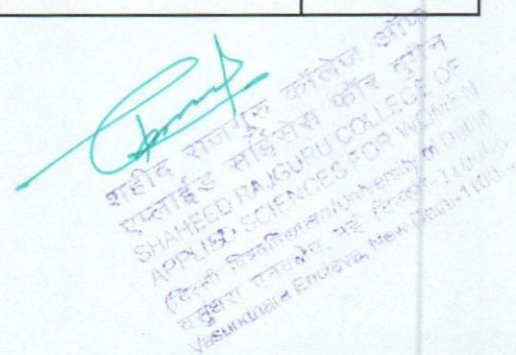 शहीद राजगुरु कॉलेज ऑफ
एप्लाईड साईंसेस फॉर वूमेन
SHAHEED RAJGURU COLLEGE OF
APPLIED SCIENCES FOR WOMEN
(दिल्ली विश्वविद्यालय/University of Delhi)
वसुंधरा एनक्लेव, नई दिल्ली-1100
Vasundhara Enclave, New Delhi-1100